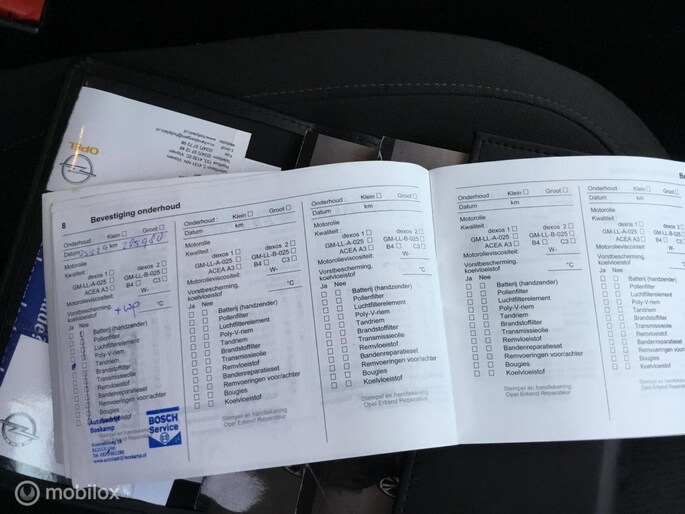 OPEL
8 Bevestiging onderhoud
Onderhoud : Klein Groot
Datum km
Motorolie
Kwaliteit : dexos 1 dexos 2
GM-LL-A-025 GM-LL-B-025
ACEA A3 B4 C3
Motorolieviscositeit: W-
Vorstbescherming, koelvloeistof °C
Ja Nee
+ WP
Batterij (handzender)
Pollenfilter
Luchtfilterelement
Poly-V-riem
Tandriem
Brandstoffilter
Transmissieolie
Remvloeistof
Bandenreparatieset
Remvoeringen voor/achter
Bougies
Koelvloeistof
Stempel en handtekening
Opel Erkend Reparateur
Autobedrijf
Boskamp
BOSCH
Service
Onderhoud : Klein Groot
Datum km
Motorolie
Kwaliteit : dexos 1 dexos 2
GM-LL-A-025 GM-LL-B-025
ACEA A3 B4 C3
Motorolieviscositeit: W-
Vorstbescherming, koelvloeistof °C
Ja Nee
Batterij (handzender)
Pollenfilter
Luchtfilterelement
Poly-V-riem
Tandriem
Brandstoffilter
Transmissieolie
Remvloeistof
Bandenreparatieset
Remvoeringen voor/achter
Bougies
Koelvloeistof
Stempel en handtekening
Opel Erkend Reparateur
Onderhoud : Klein Groot
Datum km
Motorolie
Kwaliteit : dexos 1 dexos 2
GM-LL-A-025 GM-LL-B-025
ACEA A3 B4 C3
Motorolieviscositeit: W-
Vorstbescherming, koelvloeistof °C
Ja Nee
Batterij (handzender)
Pollenfilter
Luchtfilterelement
Poly-V-riem
Tandriem
Brandstoffilter
Transmissieolie
Remvloeistof
Bandenreparatieset
Remvoeringen voor/achter
Bougies
Koelvloeistof
Stempel en handtekening
Opel Erkend Reparateur
Onderhoud : Klein Groot
Datum km
Motorolie
Kwaliteit : dexos 1 dexos 2
GM-LL-A-025 GM-LL-B-025
ACEA A3 B4 C3
Motorolieviscositeit: W-
Vorstbescherming, koelvloeistof °C
Ja Nee
Batterij (handzender)
Pollenfilter
Luchtfilterelement
Poly-V-riem
Tandriem
Brandstoffilter
Transmissieolie
Remvloeistof
Bandenreparatieset
Remvoeringen voor/achter
Bougies
Koelvloeistof
Stempel en handtekening
Opel Erkend Reparateur
Be
Onderhoud : Klein
Datum km
Motorolie
Kwaliteit : dexos 1
GM-LL-A-025
ACEA A3
Motorolieviscositeit:
Vorstbescherming, koelvloeistof
Ja Nee
Batterij (handzender)
Pollenfilter
Luchtfilterelement
Poly-V-riem
Tandriem
Brandstoffilter
Transmissieolie
Remvloeistof
Bandenreparatieset
Remvoeringen
Bougies
Koelvloeistof
mobilox